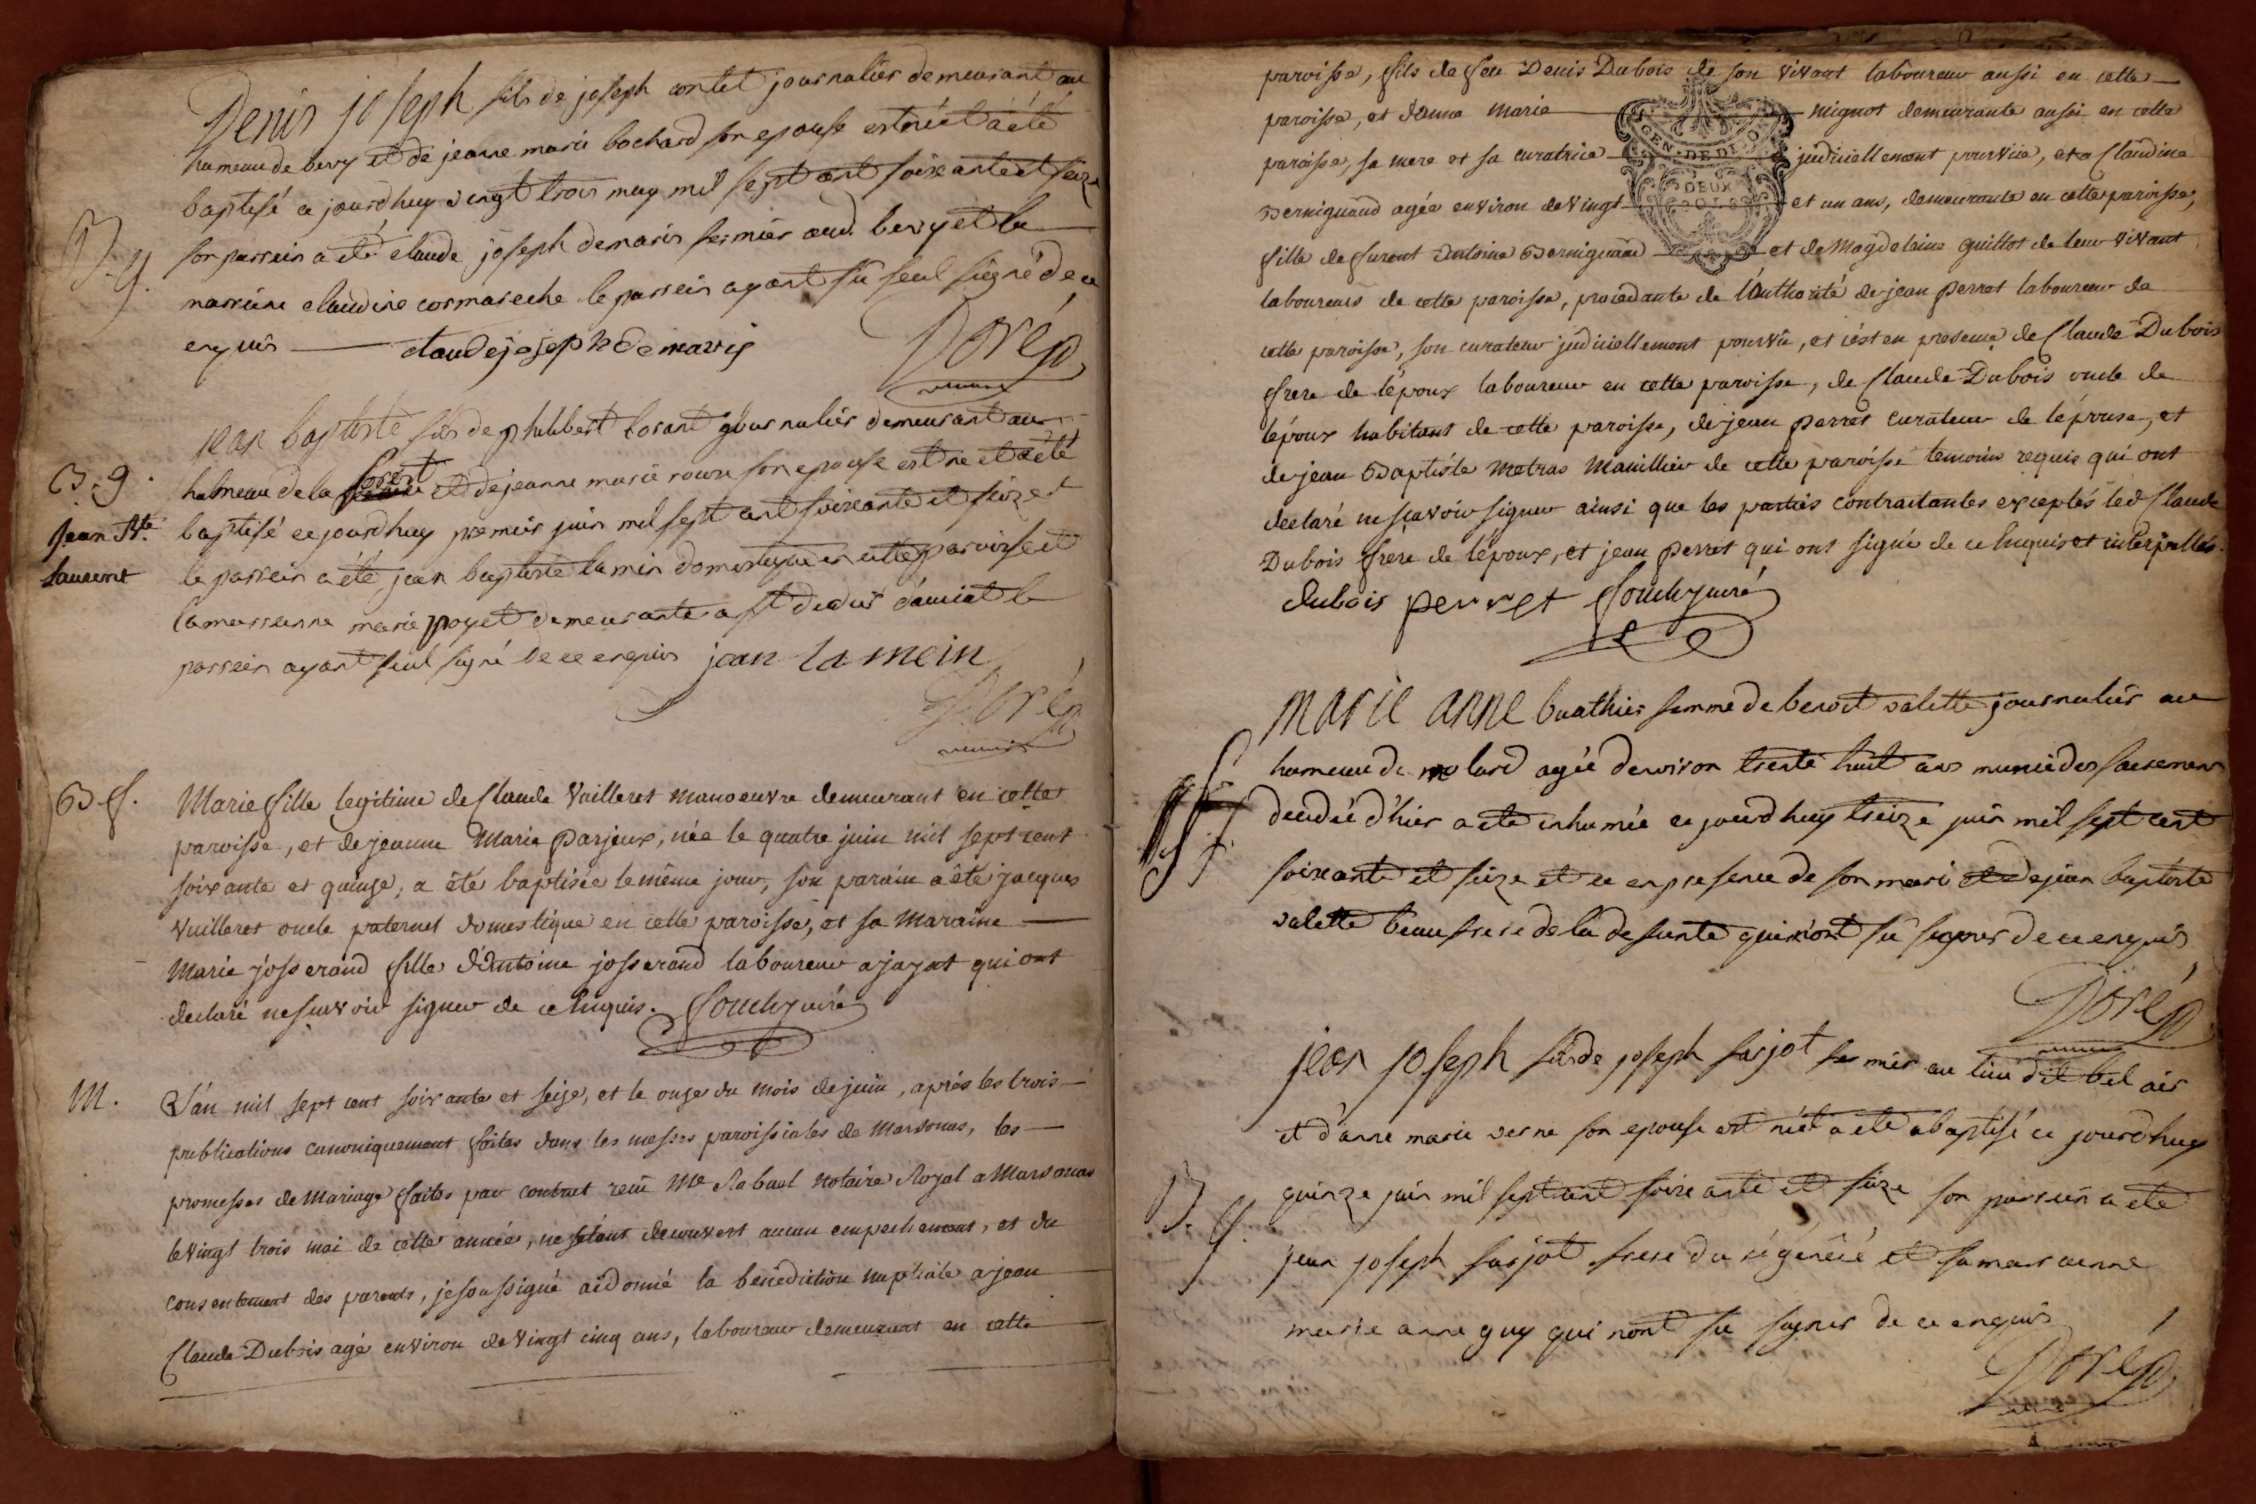 Denis joseph fils de joseph contet journalier demeurant au
hameau de bevy et de jeanne marie bochard son epouse est né et a été
baptisé ce jourd huy vingt trois may mil sept cent soixante et seize
B. g.
son parrein a été claude joseph demaris fermier aud. bevy et la
marreine claudine cormareche le parrein ayant sû seul signé de ce
enquis claude joseph demaris Doré
jean baptiste fils de philibert lorant journalier demeurant au
B. g.
hameau de la forest et de jeanne marie roux son epouse est né et a été
jean Bte
baptisé ce jourd huy premier juin mil sept cent soixante et seize et
laurent
le parrein a été jean baptiste lamin domestique en cette paroisse et
la marreinne marie poyet demeurante a st didier d'auciat le
parrein ayant seul signé de ce enquis jean la mein
Doré
B f.
Marie fille legitime de Claude Vuilleret manoeuvre demeurant en cette
paroisse, et de jeanne Marie parjeux, née le quatre juin mil sept cent
soixante et quinze, a été baptisée le même jour, son parain a été jacques
Vuilleret oncle paternel domestique en cette paroisse, et sa Maraine
Marie josserand fille d'Antoine josserand laboureur a jayat qui ont
declaré ne sçavoir signer de ce Enquis.
M.
L'an mil sept cent soixante et seize, et le onze du mois de juin, après les trois
publications canoniquement faites dans les messes paroissiales de Marsonas, les
promesses de Mariage faites par contrat reçu Me Rabuel Notaire Royal a Marsonas
le vingt trois mai de cette année, ne s'etant decouvert aucun empechement, et du
consentement des parents, je soussigné ai donné la benediction nuptiale a jean
Claude Dubois agé environ de vingt cinq ans, laboureur demeurant en cette
paroisse, fils de feu Denis Dubois de son vivant laboureur aussi en cette
paroisse, et d'anne Marie mignot demeurante aussi en cette
GEN. DE DIJO
paroisse, sa mere et sa curatrice judiciellement pourvüe, et a Claudine
DEUX
SOLS
Bernigaud agée environ de vingt et un ans, demeurante en cette paroisse,
fille de furent Antoine Bernigaud et de Magdelaine guillot de leur vivant
laboureurs de cette paroisse, procedante de l'Authorité de jean perret laboureur de
cette paroisse, son curateur judiciellement pourvû, et c'est en presence de Claude Dubois
frere de l'époux laboureur en cette paroisse, de Claude Dubois oncle de
l'époux habitant de cette paroisse, de jean perret curateur de l'épouse, et
de jean Baptiste Metras Manillier de cette paroisse temoins requis qui ont
declaré ne sçavoir signer ainsi que les parties contractantes exceptés led Claude
Dubois frere de l'époux, et jean perret qui ont signé de ce Enquis et interpellés.
dubois perret
Marie anne buathier femme de benoit valette journalier au
hameau de molard agée denviron trente huit ans munie des sacremens
decedée d'hier a eté inhumée ce jourd huy treize juin mil sept cent
soixante et seize et ce en presence de son mari et de jean baptiste
valette beau frere de la defunte qui n'ont su signer de ce enquis
Doré
jean joseph fils de joseph farjot fermier au lieu dit bel air
et d'anne marie verne son epouse est né et a eté abaptisé ce jourd huy
B. g.
quinze juin mil sept cent soixante et seize son parrein a eté
jean joseph farjot frere du régénéré et sa marrainne
marie anne guy qui n'ont su signer de ce enquis
Doré